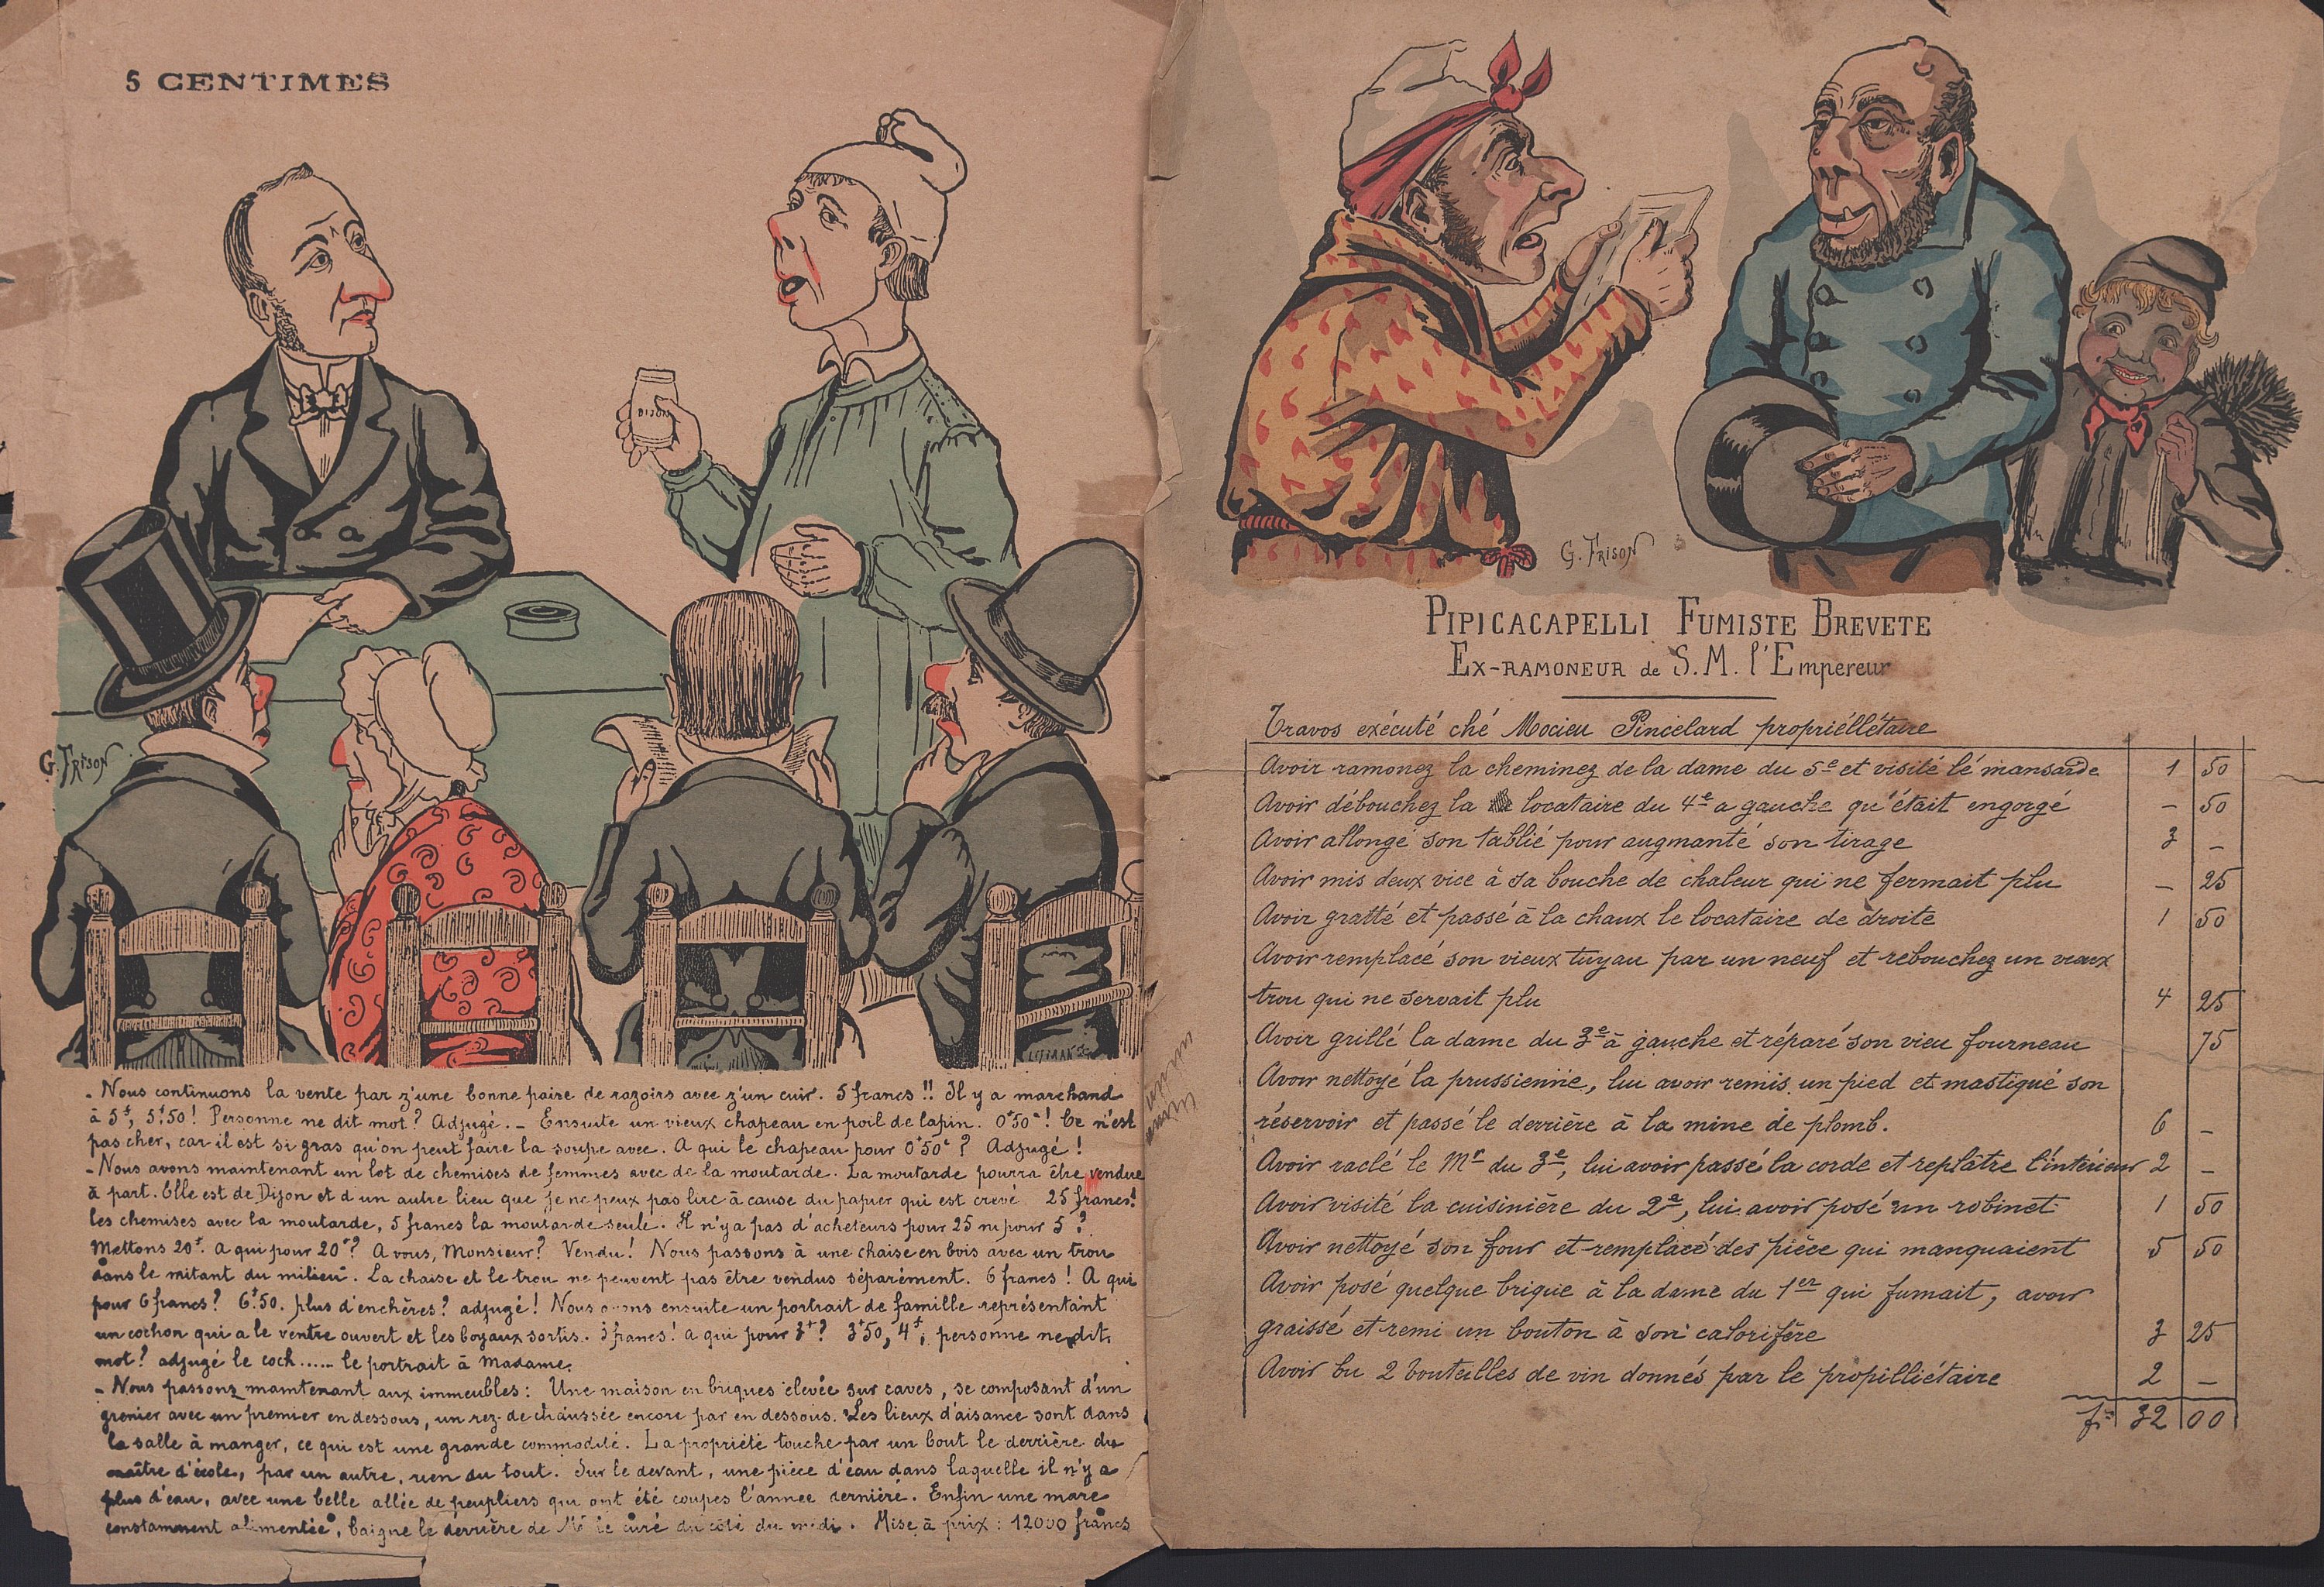 5 CENTIMES
DIJON
G. FRISON
- Nous continuons la vente par z'une bonne paire de razoirs avec z'un cuir. 5 francs !! Il y a marchand
à 5f, 5f50 ! Personne ne dit mot ? Adjugé. - Ensuite un vieux chapeau en poil de lapin. 0f50c ! Ce n'est
pas cher, car il est si gras qu'on peut faire la soupe avec. A qui le chapeau pour 0f50c ? Adjugé !
- Nous avons maintenant un lot de chemises de femmes avec de la moutarde. La moutarde pourra être vendue
à part. Elle est de Dijon et d'un autre lieu que je ne peux pas lire à cause du papier qui est crevé 25 francs !
les chemises avec la moutarde, 5 francs la moutarde seule. Il n'y a pas d'acheteurs pour 25 ni pour 5 ?
Mettons 20f. A qui pour 20f ? A vous, Monsieur ? Vendu ! Nous passons à une chaise en bois avec un trou
dans le mitant du milieu. La chaise et le trou ne peuvent pas être vendus séparément. 6 francs ! A qui
pour 6 francs ? 6f50. plus d'enchères ? adjugé ! Nous avons ensuite un portrait de famille représentant
un cochon qui a le ventre ouvert et les boyaux sortis. 3 francs ! a qui pour 3f ? 3f50, 4f, personne ne dit
mot ? adjugé le coch...... le portrait à Madame.
- Nous passons maintenant aux immeubles : Une maison en briques élevée sur caves, se composant d'un
grenier avec un premier en dessous, un rez-de chaussée encore par en dessous. Les lieux d'aisance sont dans
la salle à manger, ce qui est une grande commodité. La propriété touche par un bout le derrière du
maître d'école, par un autre, rien du tout. Sur le devant, une pièce d'eau dans laquelle il n'y a
plus d'eau, avec une belle allée de peupliers qui ont été coupés l'année dernière. Enfin une mare
constamment alimentée, baigne le derrière de Mr le curé du côté du midi. Mise à prix : 12000 francs
G. FRISON
PIPICACAPELLI FUMISTE BREVETE
EX-RAMONEUR de S.M. l'Empereur
Travos exécuté ché Mocieu Pincelard propriéllétaire
Avoir ramonez la cheminez de la dame du 5e et visité lé mansarde 1 50
Avoir débouchez la locataire du 4e a gauche qu'était engorgé - 50
Avoir allongé son tablié pour augmanté son tirage 3 -
Avoir mis deux vice à sa bouche de chaleur qui ne fermait plu - 25
Avoir gratté et passé à la chaux le locataire de droite 1 50
Avoir remplacé son vieux tuyau par un neuf et rebouchez un vieux
trou qui ne servait plu 4 25
Avoir grillé la dame du 3e à gauche et réparé son vieu fourneau 75
Avoir nettoyé la prussienne, lui avoir remis un pied et mastiqué son
réservoir et passé le derrière à la mine de plomb. 6 -
Avoir raclé le Mr du 3e, lui avoir passé la corde et replâtré l'intérieur 2 -
Avoir visité la cuisinière du 2e, lui avoir posé un robinet 1 50
Avoir nettoyé son four et remplacé des pièce qui manquaient 5 50
Avoir posé quelque brique à la dame du 1er qui fumait, avoir
graissé et remi un bouton à son calorifère 3 25
Avoir bu 2 bouteilles de vin donnés par le propilliétaire 2 -
fr 32 00